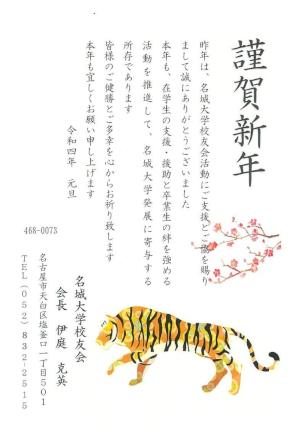 謹賀新年
昨年は、名城大学校友会活動にご支援とご協を賜り
まして誠にありがとうございました
本年も、在学生の支援・援助と卒業生の絆を強める
活動を推進して、名城大学発展に寄与する
所存であります
皆様のご健勝とご多幸を心からお祈り致します
本年も宜しくお願い申し上げます
令和四年　元旦
468-0073
名城大学校友会
会長　伊庭　克英
名古屋市天白区塩釜口一丁目501
TEL(052)832-2515